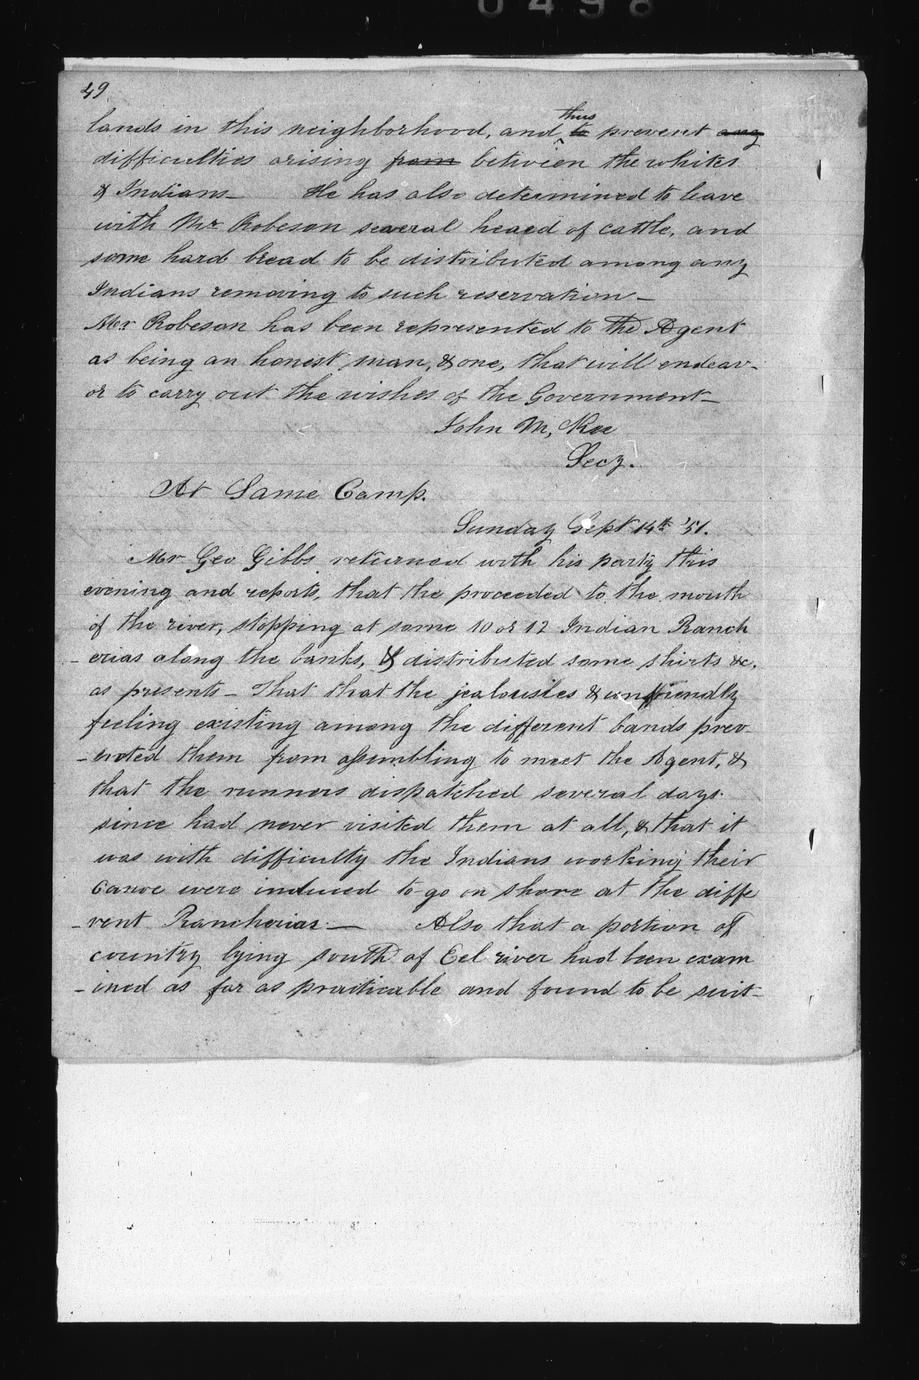 0498
49
lands in this neighborhood, and thus to prevent any
difficulties arising from between the whites
& Indians – He has also determined to leave
with Mr Robeson several head of cattle, and
some hard bread to be distributed among any
Indians removing to such reservation –
Mr Robeson has been represented to the Agent
as being an honest man, & one, that will endeav-
or to carry out the wishes of the Government –
John McKee
Secy.
At Same Camp.
Sunday Sept 14th '51.
Mr Geo Gibbs returned with his party this
evening and reports, that the proceeded to the mouth
of the river, stopping at some 10 or 12 Indian Ranch
-erias along the banks, & distributed some shirts &c.
as presents – That that the jealousies & unfriendly
feeling existing among the different bands prev-
-ented them from assembling to meet the Agent, &
that the runners dispatched several days
since had never visited them at all, & that it
was with difficulty the Indians working their
canoe were induced to go on shore at the diffe
-rent Rancherias – Also that a portion of
country lying south of Eel river had been exam
-ined as far as practicable and found to be suit-